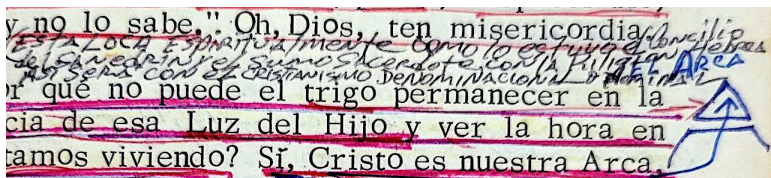 y no lo sabe." Oh, Dios, ten misericordia
ESTA LOCA ESPIRITUALmente como lo estuvo el Concilio
del SANedrin y el Sumo Sacerdote con la Religion Hebrea
ASI SERA CON EL CRISTIANISMO DENOMINACIONAL
EL ARCA
r qué no puede el trigo permanecer en la
cia de esa Luz del Hijo y ver la hora en
tamos viviendo? Sí, Cristo es nuestra Arca,